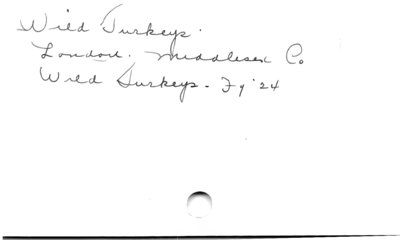 Wild Turkeys.
London. Middlesex Co
Wild Turkeys. Fy '24